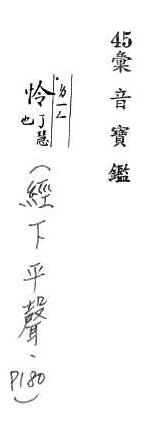 45彙音寶鑑
˙ㄌㄧㄥ
怜 了慧也
(經下平聲、P180)